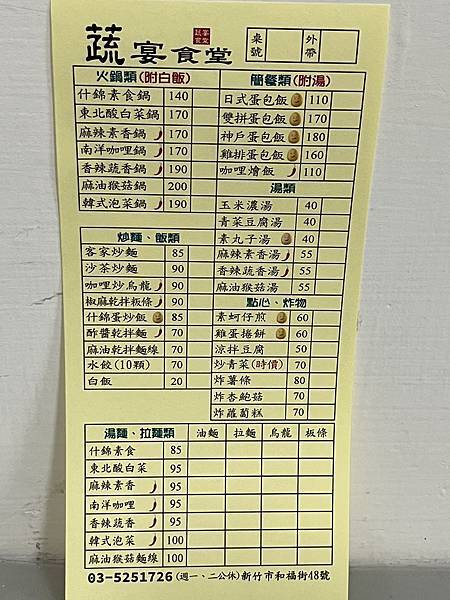 蔬宴食堂
蔬宴食堂
桌號
外帶
火鍋類(附白飯)
什錦素食鍋 140
東北酸白菜鍋 170
麻辣素香鍋 170
南洋咖哩鍋 170
香辣蔬香鍋 190
麻油猴菇鍋 200
韓式泡菜鍋 190
炒麵、飯類
客家炒麵 85
沙茶炒麵 90
咖哩炒烏龍 90
椒麻乾拌板條 90
什錦蛋炒飯 85
酢醬乾拌麵 70
麻油乾拌麵線 70
水餃(10顆) 70
白飯 20
簡餐類(附湯)
日式蛋包飯 110
雙拼蛋包飯 170
神戶蛋包飯 180
雞排蛋包飯 160
咖哩燴飯 110
湯類
玉米濃湯 40
青菜豆腐湯 40
素丸子湯 40
麻辣素香湯 55
香辣蔬香湯 55
麻油猴菇湯 55
點心、炸物
素蚵仔煎 60
雞蛋捲餅 60
涼拌豆腐 50
炒青菜(時價) 70
炸薯條 80
炸杏鮑菇 70
炸蘿蔔糕 70
湯麵、拉麵類 油麵 拉麵 烏龍 板條
什錦素食 85
東北酸白菜 95
麻辣素香 95
南洋咖哩 95
香辣蔬香 95
韓式泡菜 100
麻油猴菇麵線 100
03-5251726(週一、二公休)新竹市和福街48號